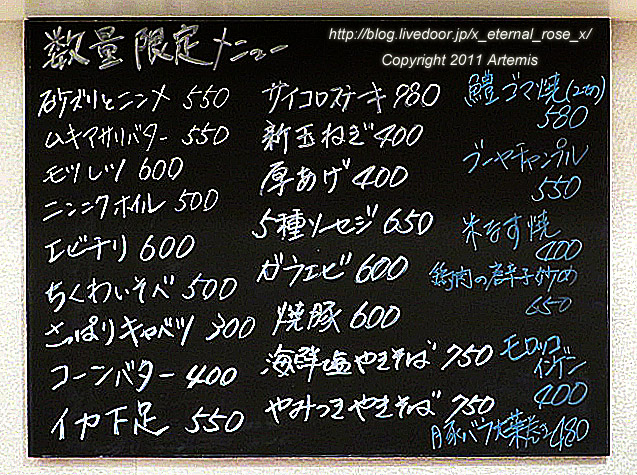 http://blog.livedoor.jp/x_eternal_rose_x/
Copyright 2011 Artemis
数量限定メニュー
砂ズリとニンメ 550
ムキアサリバター 550
モツレツ 600
ニンニクホイル 500
エビチリ 600
ちくわいそべ 500
さっぱりキャベツ 300
コーンバター 400
イカ下足 550
サイコロステーキ 980
新玉ねぎ 400
厚あげ 400
5種ソーセージ 650
ガラエビ 600
焼豚 600
海鮮塩やきそば 750
やみつきやきそば 750
鱧ゴマ焼(2切)
580
ゴーヤチャンプル
550
米なす焼
400
鶏肉の唐辛子炒め
650
モロッコ
インゲン
400
豚バラ大葉巻き 480